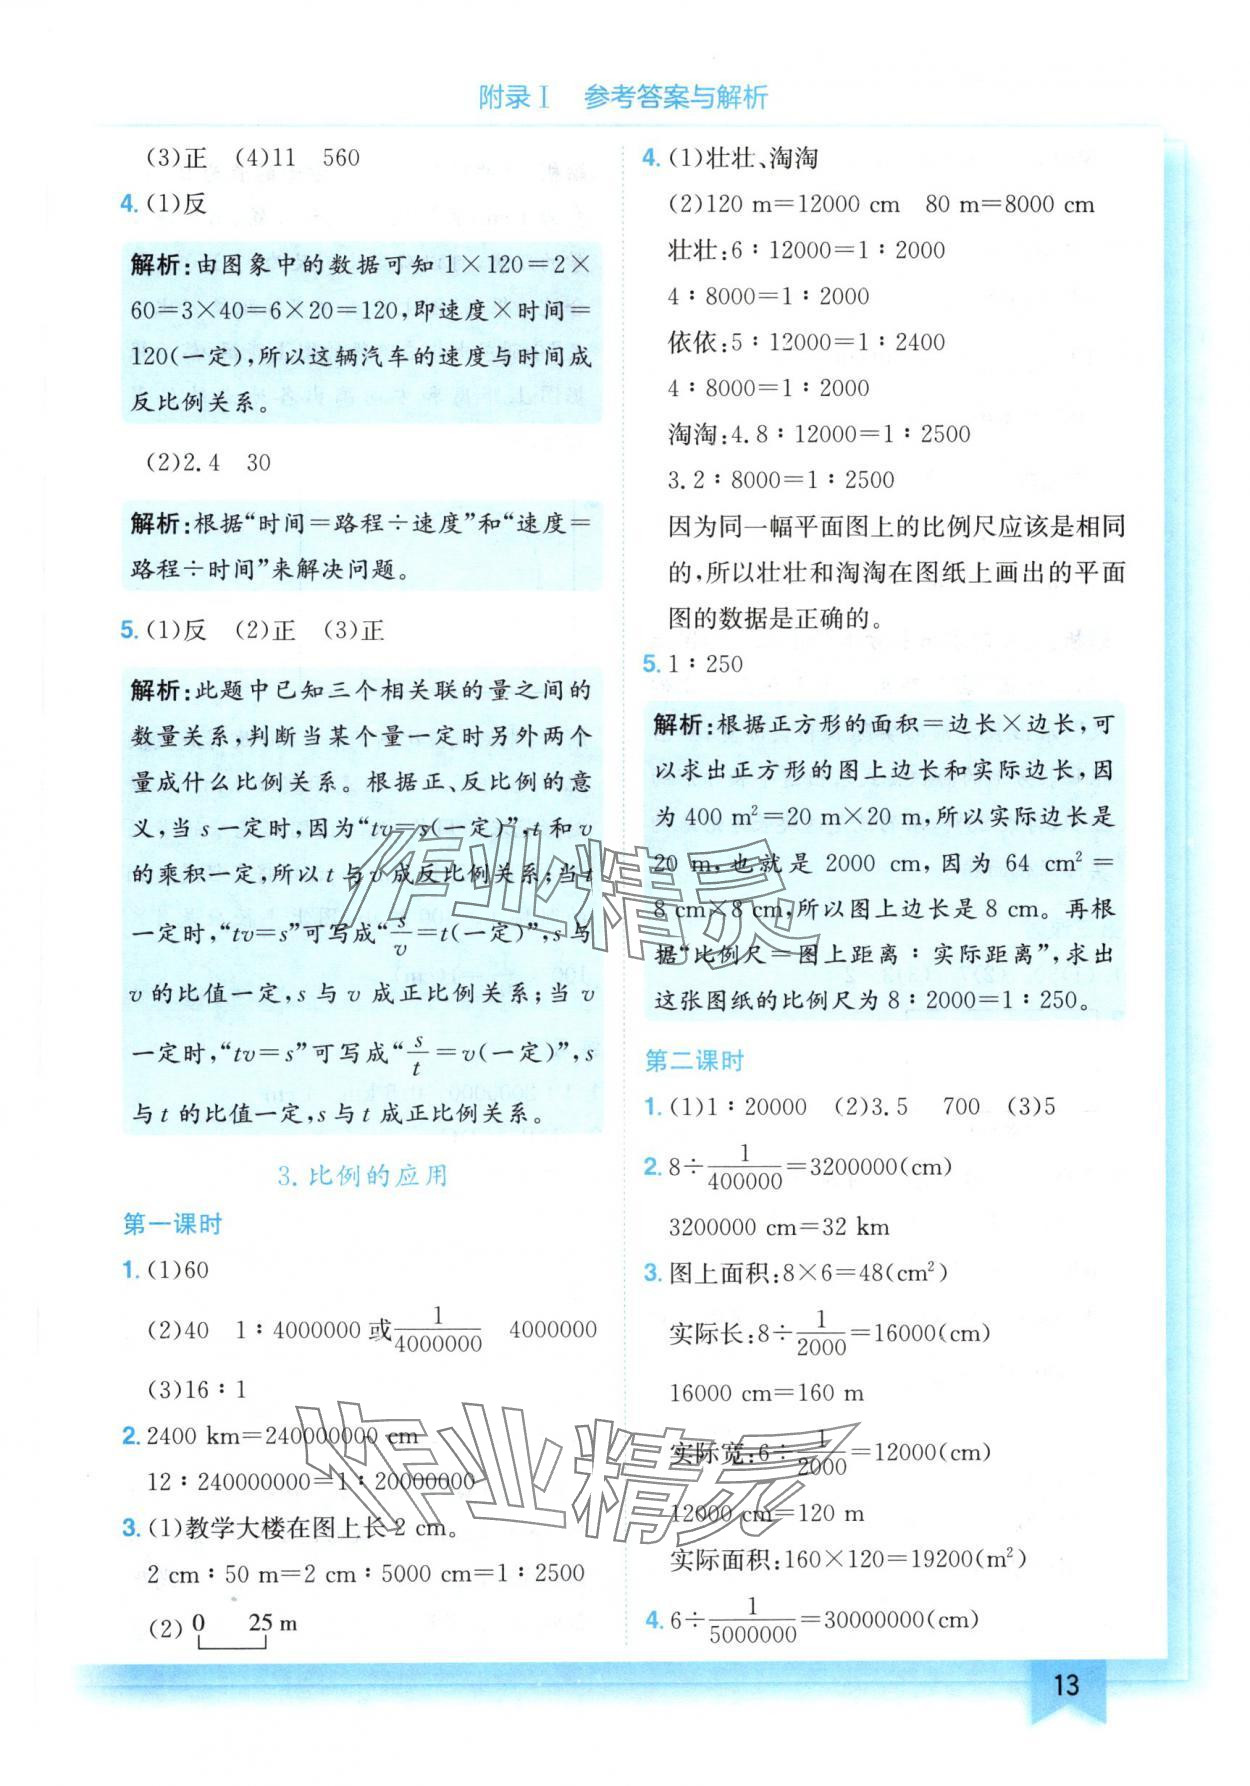 附录Ⅰ 参考答案与解析
(3)正 (4)11 560
4.(1)反
解析:由图象中的数据可知1×120=2×
60=3×40=6×20=120,即速度×时间=
120(一定),所以这辆汽车的速度与时间成
反比例关系。
(2)2.4 30
解析:根据“时间=路程÷速度”和“速度=
路程÷时间”来解决问题。
5.(1)反 (2)正 (3)正
解析:此题中已知三个相关联的量之间的
数量关系,判断当某个量一定时另外两个
量成什么比例关系。根据正、反比例的意
义,当 s 一定时,因为“tv=s(一定)”,t 和 v
的乘积一定,所以 t 与 v 成反比例关系;当 t
一定时,“tv=s”可写成“s/v=t(一定)”,s 与
v 的比值一定,s 与 v 成正比例关系;当 v
一定时,“tv=s”可写成“s/t=v(一定)”,s
与 t 的比值一定,s 与 t 成正比例关系。
3.比例的应用
第一课时
1.(1)60
(2)40 1∶4000000或1/4000000 4000000
(3)16∶1
2. 2400 km=240000000 cm
12∶240000000=1∶20000000
3.(1)教学大楼在图上长2 cm。
2 cm∶50 m=2 cm∶5000 cm=1∶2500
(2) 0 25 m
4.(1)壮壮、淘淘
(2)120 m=12000 cm 80 m=8000 cm
壮壮:6∶12000=1∶2000
4∶8000=1∶2000
依依:5∶12000=1∶2400
4∶8000=1∶2000
淘淘:4.8∶12000=1∶2500
3.2∶8000=1∶2500
因为同一幅平面图上的比例尺应该是相同
的,所以壮壮和淘淘在图纸上画出的平面
图的数据是正确的。
5. 1∶250
解析:根据正方形的面积=边长×边长,可
以求出正方形的图上边长和实际边长,因
为 400 m²=20 m×20 m,所以实际边长是
20 m,也就是 2000 cm,因为 64 cm²=
8 cm×8 cm,所以图上边长是 8 cm。再根
据“比例尺=图上距离∶实际距离”,求出
这张图纸的比例尺为 8∶2000=1∶250。
第二课时
1.(1)1∶20000 (2)3.5 700 (3)5
2. 8÷1/400000=3200000(cm)
3200000 cm=32 km
3. 图上面积:8×6=48(cm²)
实际长:8÷1/2000=16000(cm)
16000 cm=160 m
实际宽:6÷1/2000=12000(cm)
12000 cm=120 m
实际面积:160×120=19200(m²)
4. 6÷1/5000000=30000000(cm)
作业精灵
作业精灵
13